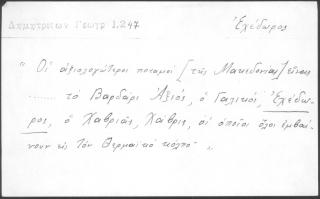 Δημητριέων Γεωγρ 1.247
Ἐχέδωρος
" Οἱ ἀξιολογώτεροι ποταμοί [τῆς Μακεδονίας] εἶναι
........ τό Βαρδάρι Ἀξιός, ὁ Γαλικός, Ἐχέδω-
ρος, ὁ Χαβριας, Χάβρις, οἱ ὁποῖοι ὅλοι ἐμβαί-
νουν εἰς τόν Θερμαϊκό κόλπο "